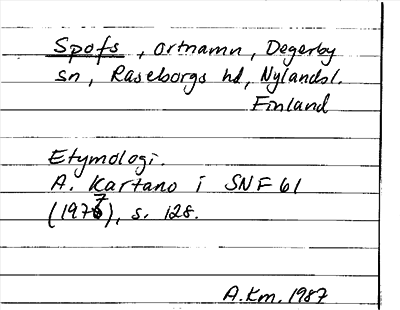 Spofs, ortnamn, Degerby
sn, Raseborgs hd, Nylandsl.
Finland
Etymologi.
A. Kartano i SNF 61
(1977), s. 128.
A.Km. 1987